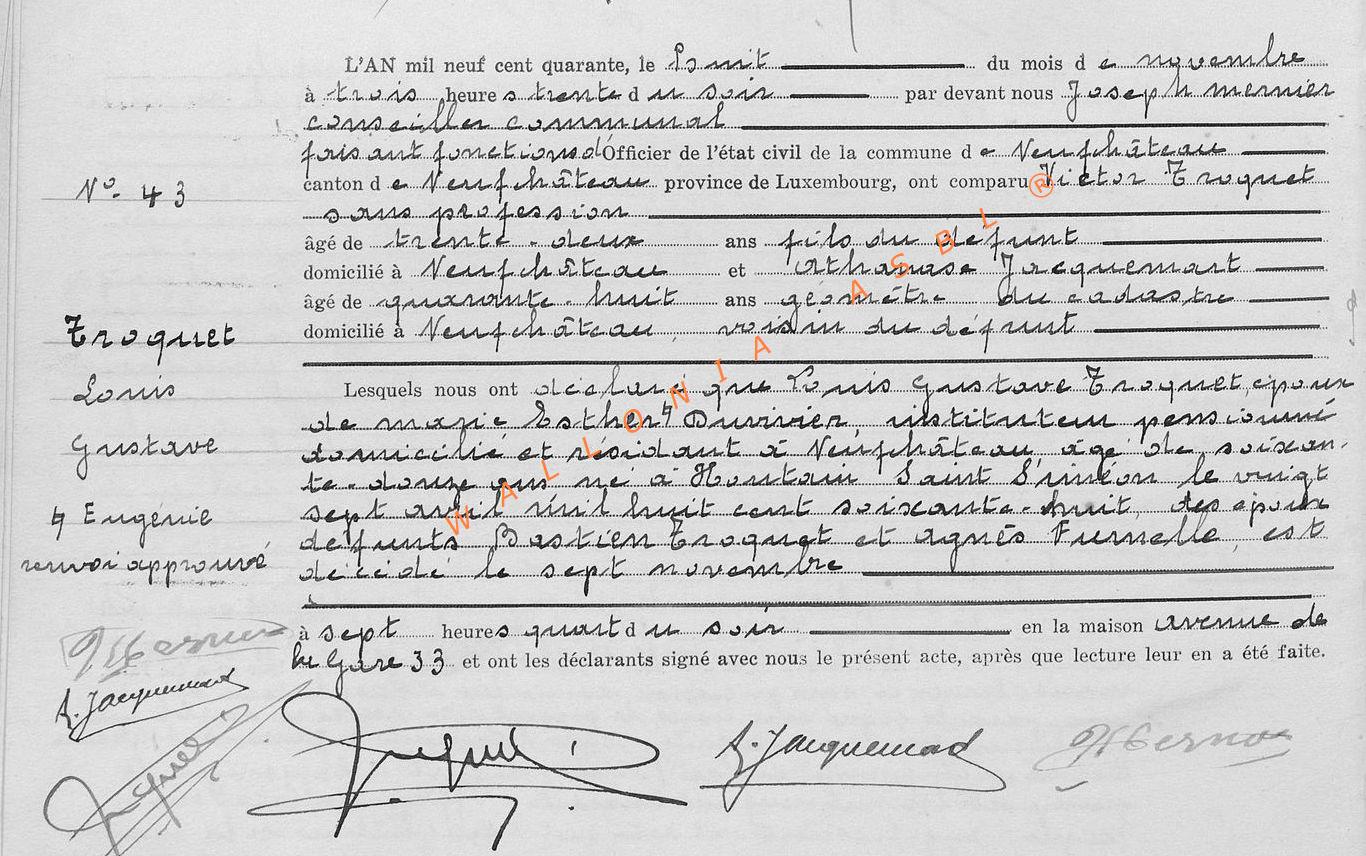 L'AN mil neuf cent quarante, le huit du mois de novembre
à trois heures trente du soir par devant nous Joseph Mernier
conseiller communal
faisant fonctions d'Officier de l'état civil de la commune de Neufchâteau
canton de Neufchâteau province de Luxembourg, ont comparu Victor Troquet
sans profession
âgé de trente-deux ans fils du défunt
domicilié à Neufchâteau et Athanase Jacquemart
âgé de quarante-huit ans géomètre du cadastre
domicilié à Neufchâteau, voisin du défunt
Lesquels nous ont déclaré que Louis Gustave Troquet, époux
de Marie Esther ϟ Duvivier, instituteur pensionné
domicilié et résidant à Neufchâteau âgé de soixan-
te-douze ans né à Houtain Saint Siméon le vingt
sept avril mil huit cent soixante-huit, des époux
défunts Bastien Troquet et Agnès Furnelle, est
décédé le sept novembre
à sept heures quart du soir en la maison avenue de
la Gare 33 et ont les déclarants signé avec nous le présent acte, après que lecture leur en a été faite.
N° 43
Troquet
Louis
Gustave
ϟ Eugénie
renvoi approuvé
JMernier
A. Jacquemart
Troquet
Troquet
A. Jacquemart
JMernier
WALLONIA ASBL ®